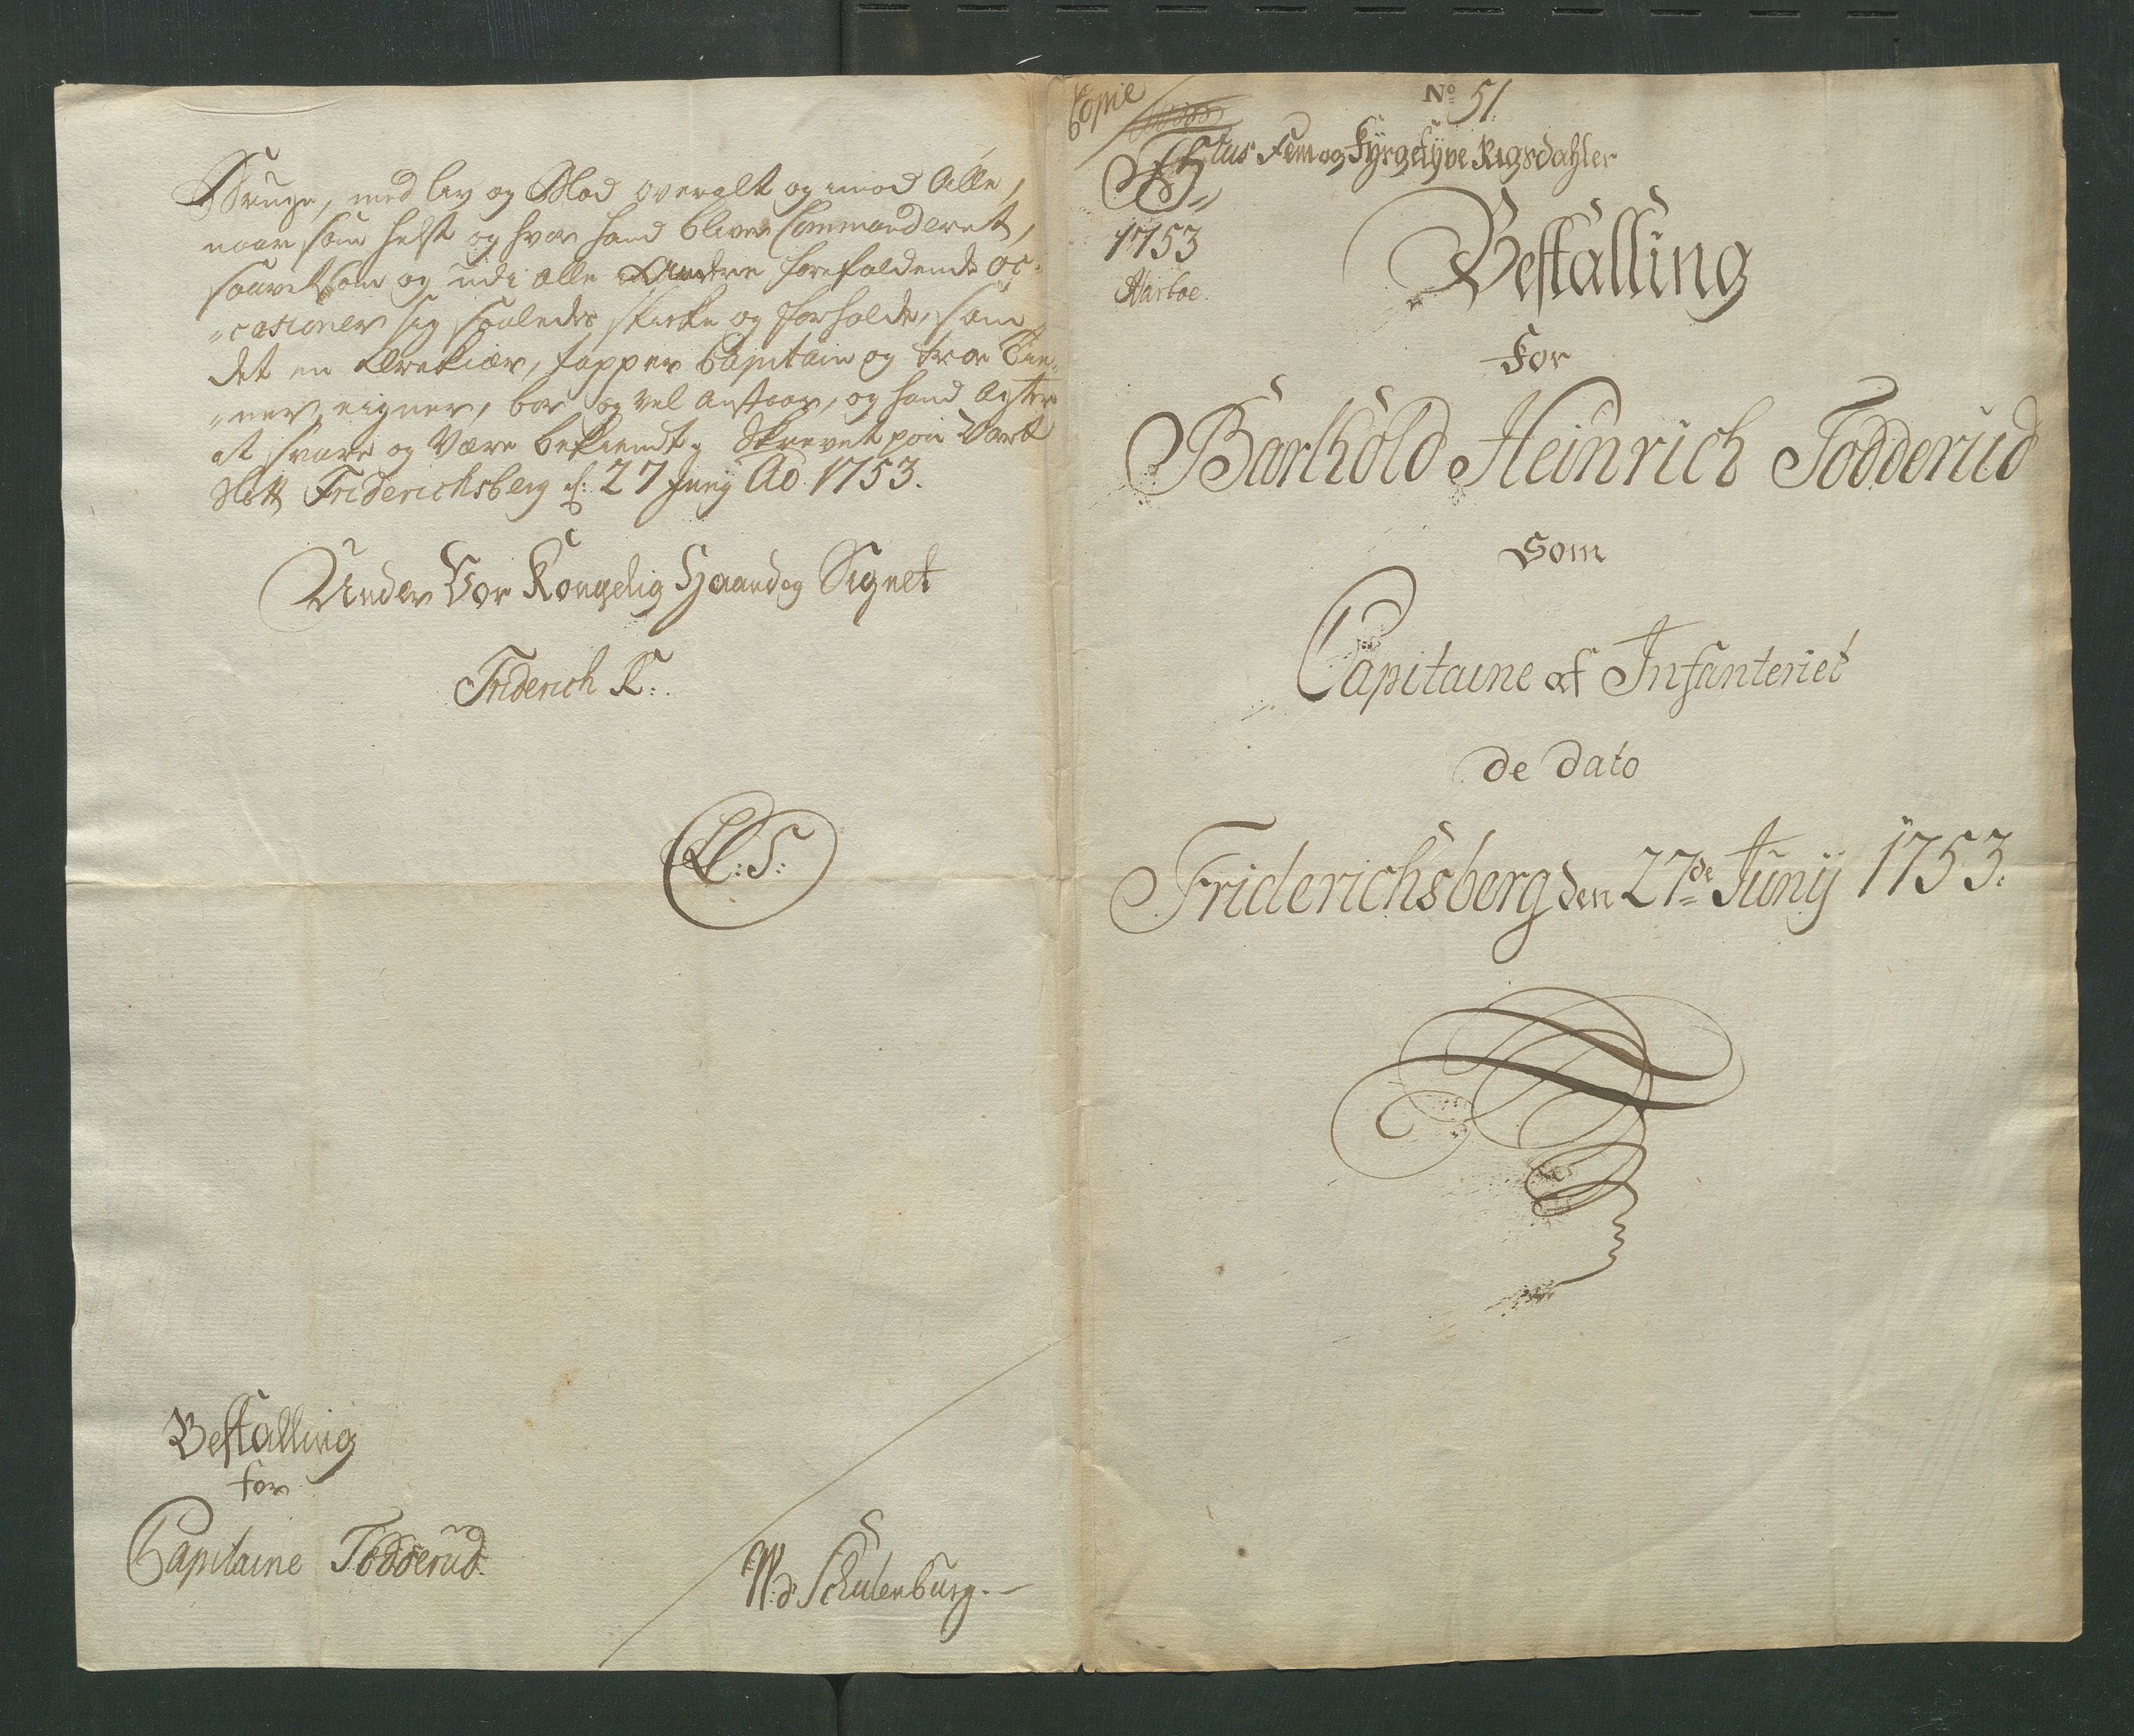 Bruge, med liv og Blod overalt og imod Alle,
naar som helst og hvor hand bliver Commanderet,
saavelsom og udi alle andre forefaldende oc-
"casioner sig saaledes skikke og forholde, som
det en ærekiær, tapper Capitain og troe Tie-
"ner eigner, bør og vel anstaar, og hand agter
at svare og være bekiendt. Skrevet paa Vort
Slott Friderichsberg d: 27 Junij Ao 1753.
Under Vor Kongelig Haand og Signet
Friderich R:.
L:S:
Bestalling
for
Capitaine Todderud.
W: d Schulenburg.
Copie
No 51
Fem og Fyrgetyve Rigsdahler
1753
Bestalling
For
Barthold Heinrich Todderud
Som
Capitaine af Infanteriet
de dato
Friderichsberg den 27de Junij 1753.